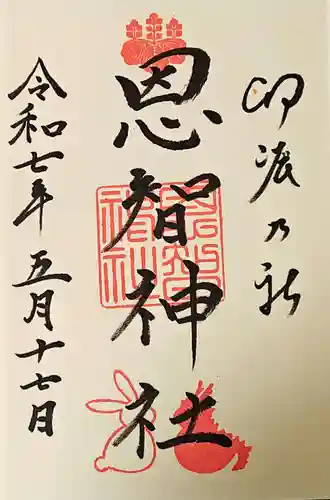 印渡乃社
恩智神社
令和七年 五月十七日
恩智神社